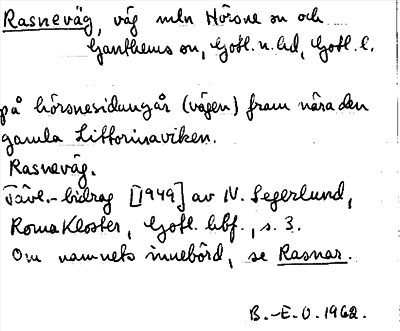 Rasneväg, väg mln Hörsne sn och
Ganthems sn, Gotl. n. hd, Gotl. l.
på hörsnesidan går (vägen) fram nära den
gamla Littorinaviken.
Rasneväg.
Tävl.-bidrag [1949] av N. Segerlund,
Roma Kloster, Gotl. hbf., s. 3.
Om namnets innebörd, se Rasnar.
B.-E.O. 1962.